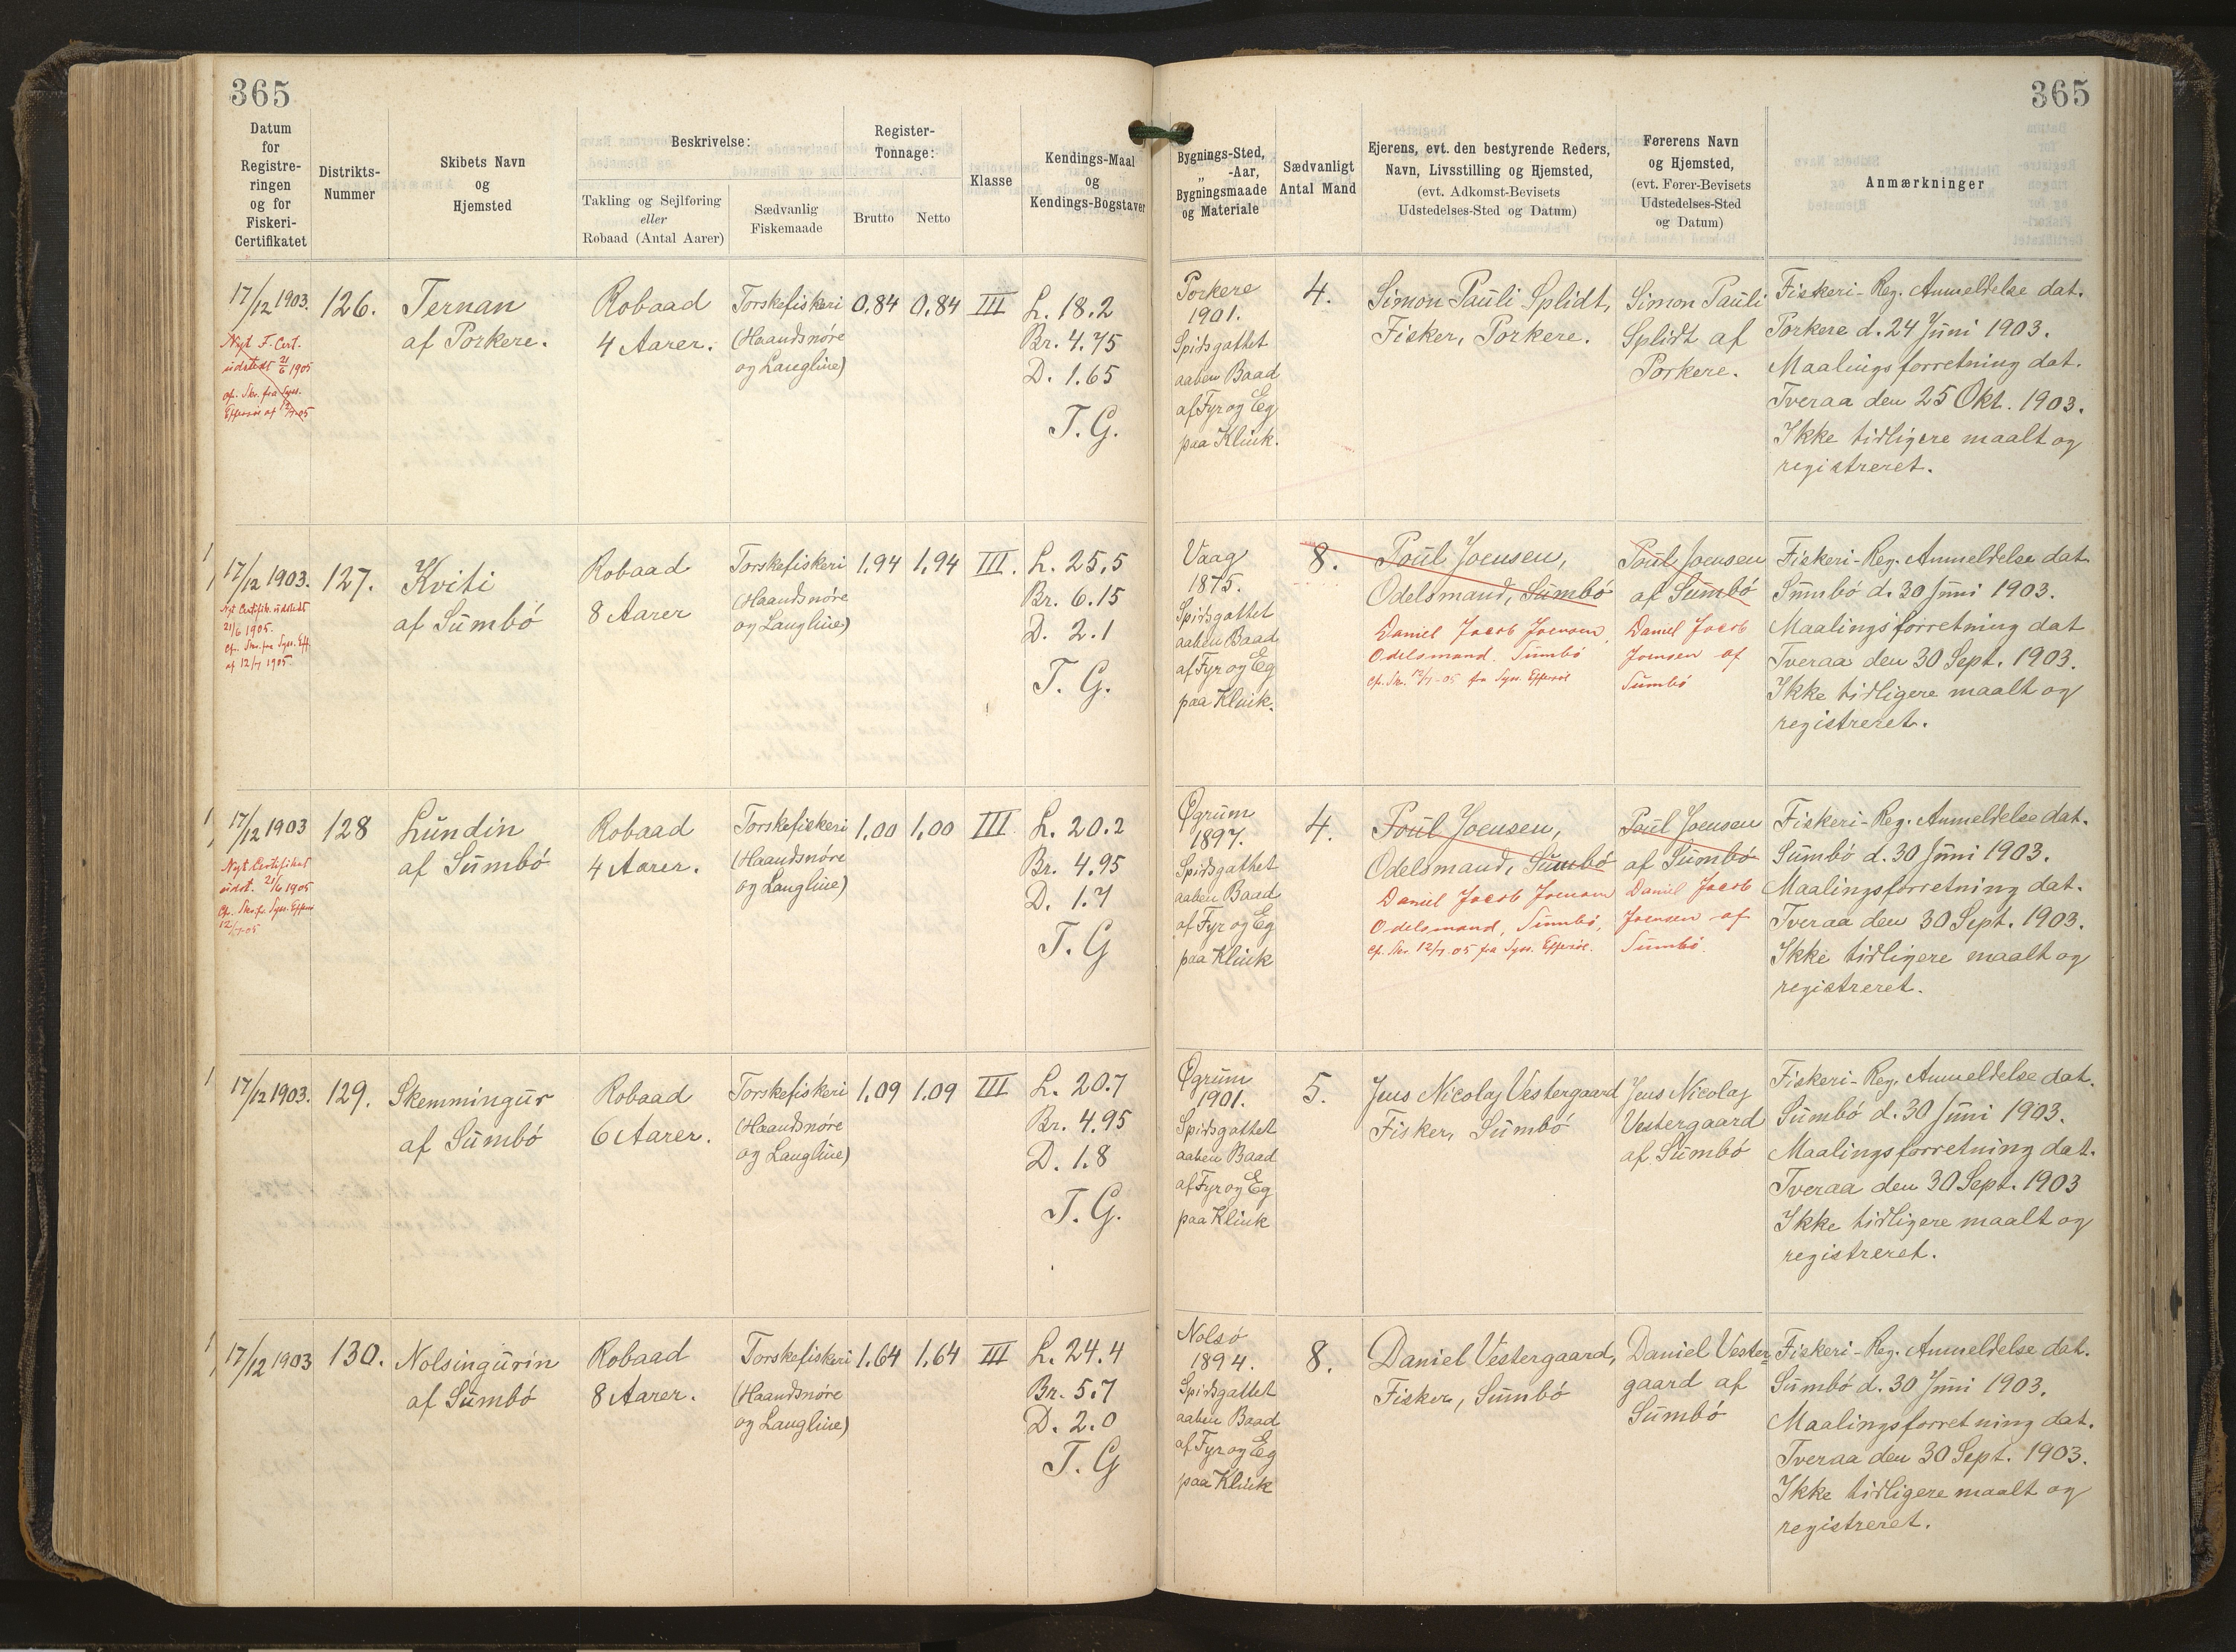 365
365
Datum
for
Registre-
ringen
og for
Fiskeri-
Certifikatet
Distrikts-
Nummer
Skibets Navn
og
Hjemsted
Beskrivelse:
Takling og Sejlføring
eller
Robaad (Antal Aarer)
Sædvanlig
Fiskemaade
Register-
Tonnage:
Brutto
Netto
Klasse
Kendings-Maal
og
Kendings-Bogstaver
Bygnings-Sted,
„ -Aar,
Bygningsmaade
og Materiale
Sædvanligt
Antal Mand
Ejerens, evt. den bestyrende Reders,
Navn, Livsstilling og Hjemsted,
(evt. Adkomst-Bevisets
Udstedelses-Sted og Datum)
Førerens Navn
og Hjemsted,
(evt. Fører-Bevisets
Udstedelses-Sted
og Datum)
Anmærkninger
17/12 1903.
Nyt F. Cert.
udstedt 21/6 1905
cfr. Skr. fra Syss.
Effersøe af 12/7-05
126.
Ternan
af Porkere.
Robaad
4 Aarer.
Torskefiskeri
(Haandsnøre
og Langline)
0,84
0,84
III
L. 18.2
Br. 4.75
D. 1.65
T. G.
Porkere
1901.
Spidsgattet
aaben Baad
af Fyr og Eg
paa Klink.
4.
Simon Pauli Splidt,
Fisker, Porkere.
Simon Pauli
Splidt af
Porkere.
Fiskeri-Reg. Anmeldelse dat.
Porkere d. 24 Juni 1903.
Maalingsforretning dat.
Tveraa den 25 Okt. 1903.
Ikke tidligere maalt og
registreret.
17/12 1903.
Nyt Certifik. udstedt
21/6 1905.
cfr. Skr. fra Syss. Eff.
af 12/7 1905.
127.
Kviti
af Sumbö
Robaad
8 Aarer
Torskefiskeri
(Haandsnøre
og Langline)
1,94
1,94
III.
L. 25,5
Br. 6.15
D. 2.1
T. G.
Vaag
1875.
Spidsgattet
aaben Baad
af Fyr og Eg
paa Klink.
8.
Poul Joensen,
Odelsmand, Sumbö
Daniel Jacob Joensen,
Odelsmand. Sumbö
cfr. Skr. 12/7-05 fra Syss. Effersöe
Poul Joensen
af Sumbö
Daniel Jacob
Joensen af
Sumbö
Fiskeri-Reg. Anmeldelse dat.
Sumbö d. 30 Juni 1903.
Maalingsforretning dat
Tveraa den 30 Sept. 1903.
Ikke tidligere maalt og
registreret.
17/12 1903
Nyt Certifikat
udst. 21/6 1905
cfr. Skr. fr. Syss. Effersö
12/7-05
128
Lundin
af Sumbö
Robaad
4 Aarer.
Torskefiskeri
(Haandsnøre
og Langline)
1,00
1,00
III
L. 20.2
Br. 4.95
D. 1.7
T. G
Øgrum
1897.
Spidsgattet
aaben Baad
af Fyr og Eg
paa Klink
4.
Poul Joensen,
Odelsmand, Sumbö
Daniel Jacob Joensen
Odelsmand, Sumbö,
cfr. Skr. 12/7-05 fra Syss. Effersöe.
Poul Joensen
af Sumbö
Daniel Jacob
Joensen af
Sumbö.
Fiskeri-Reg. Anmeldelse dat.
Sumbö d. 30 Juni 1903.
Maalingsforretning dat.
Tveraa den 30 Sept. 1903.
Ikke tidligere maalt og
registreret.
17/12 1903.
129.
Skemmingur
af Sumbö
Robaad
6 Aarer.
Torskefiskeri
(Haandsnøre
og Langline)
1,09
1.09
III
L. 20.7
Br. 4.95
D. 1.8
T. G.
Øgrum
1901.
Spidsgattet
aaben Baad
af Fyr og Eg
paa Klink
5.
Jens Nicolaj Vestergaard
Fisker, Sumbö
Jens Nicolaj
Vestergaard
af Sumbö
Fiskeri-Reg. Anmeldelse dat.
Sumbö d. 30 Juni 1903.
Maalingsforretning dat.
Tveraa den 30 Sept. 1903
Ikke tidligere maalt og
registreret.
17/12 1903
130.
Nolsingurin
af Sumbö
Robaad
8 Aarer.
Torskefiskeri
(Haandsnøre
og Langline)
1.64
1,64
III
L. 24.4
Br. 5.7
D. 2.0
T. G
Nolsö
1894.
Spidsgattet
aaben Baad
af Fyr og Eg
paa Klink
8.
Daniel Vestergaard,
Fisker, Sumbö
Daniel Vester-
gaard af
Sumbö
Fiskeri-Reg. Anmeldelse dat.
Sumbö d. 30 Juni 1903.
Maalingsforretning dat.
Tveraa den 30 Sept. 1903.
Ikke tidligere maalt og
registreret.